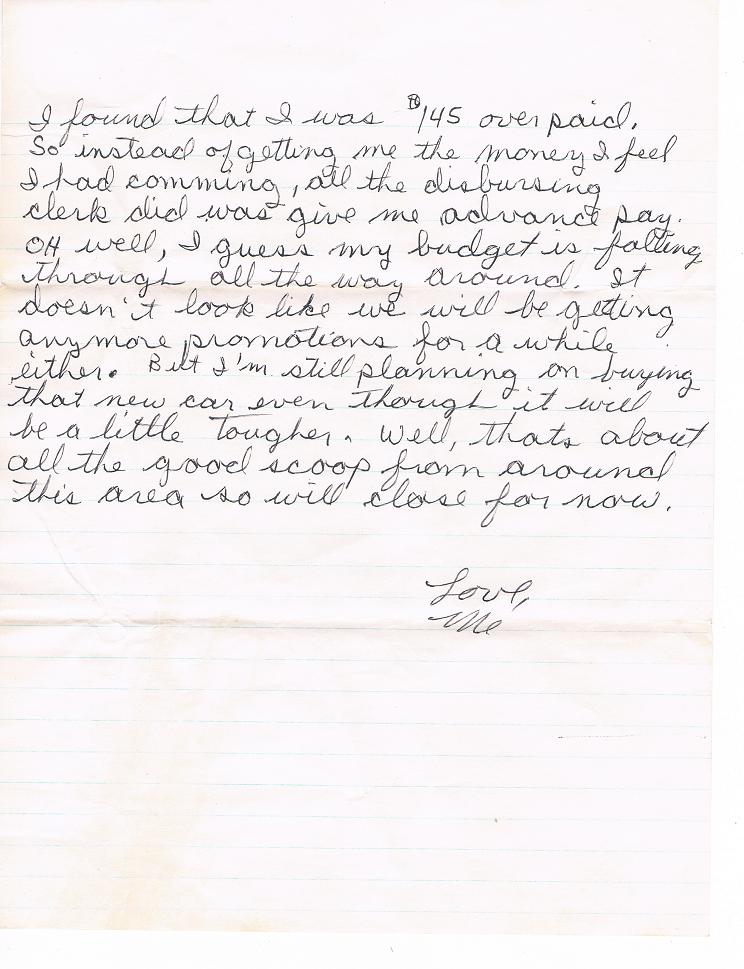 I found that I was $145 over paid.
So instead of getting me the money I feel
I had comming, all the disbursing
clerk did was give me advance pay.
OH well, I guess my budget is falling
through all the way around. It
doesn't look like we will be getting
anymore promotions for a while
either. But I'm still planning on buying
that new car even though it will
be a little tougher. Well, thats about
all the good scoop from around
this area so will close for now.
Love,
Me